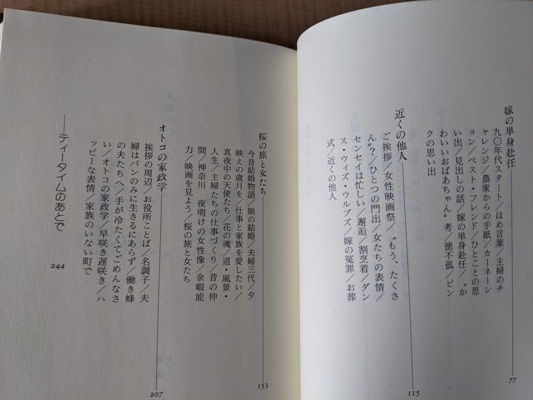 嫁の単身赴任
九〇年代スタート／ほめ言葉／主婦のチ
ャレンジ／農家からの手紙／カーネーシ
ョン／ベスト・フレンド／ひとことの思
い出／見出しの話／嫁の単身赴任／〝か
わいいおばあちゃん〟考／徳不孤／ピン
クの思い出
77
近くの他人
ご挨拶／女性映画祭／〝もう、たくさ
ん〟？／ひとつの門出／女たちの表情／
センセイは忙しい／邂逅／割烹着／ダン
ス・ウィズ・ウルブズ／嫁の冤罪／お葬
式／近くの他人
115
桜の旅と女たち
今昔結婚物語／娘の結婚／夫婦三代／夕
映えの歳月を／仕事と家族を愛したい／
真夜中の天使たち／花の魂／道・風景・
人生／主婦たちの仕事づくり／昔の仲
間／神奈川 夜明けの女性像／余暇能
力／映画を見よう／桜の旅と女たち
153
オトコの家政学
挨拶の周辺／お役所ことば／名調子／夫
婦はパンのみに生きるにあらず／働き蜂
の夫たちへ／手が冷たくてごめんなさ
い／オトコの家政学／早咲き遅咲き／ハ
ッピーな表情／家族のいない町で
207
──ティータイムのあとで
244